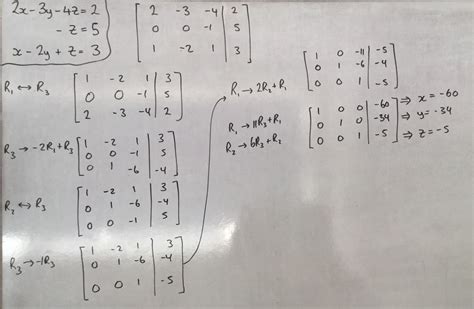 2x-3y-4z=2
-z=5
x-2y+z=3
[ 2 -3 -4 | 2 ]
[ 0 0 -1 | 5 ]
[ 1 -2 1 | 3 ]
R₁ ↔ R₃
[ 1 -2 1 | 3 ]
[ 0 0 -1 | 5 ]
[ 2 -3 -4 | 2 ]
R₃ → -2R₁+R₃
[ 1 -2 1 | 3 ]
[ 0 0 -1 | 5 ]
[ 0 1 -6 | -4 ]
R₂ ↔ R₃
[ 1 -2 1 | 3 ]
[ 0 1 -6 | -4 ]
[ 0 0 -1 | 5 ]
R₃ → -1R₃
[ 1 -2 1 | 3 ]
[ 0 1 -6 | -4 ]
[ 0 0 1 | -5 ]
R₁ → 2R₂+R₁
[ 1 0 -11 | -5 ]
[ 0 1 -6 | -4 ]
[ 0 0 1 | -5 ]
R₁ → 11R₃+R₁
R₂ → 6R₃+R₂
[ 1 0 0 | -60 ] ⇒ x=-60
[ 0 1 0 | -34 ] ⇒ y=-34
[ 0 0 1 | -5 ] ⇒ z=-5